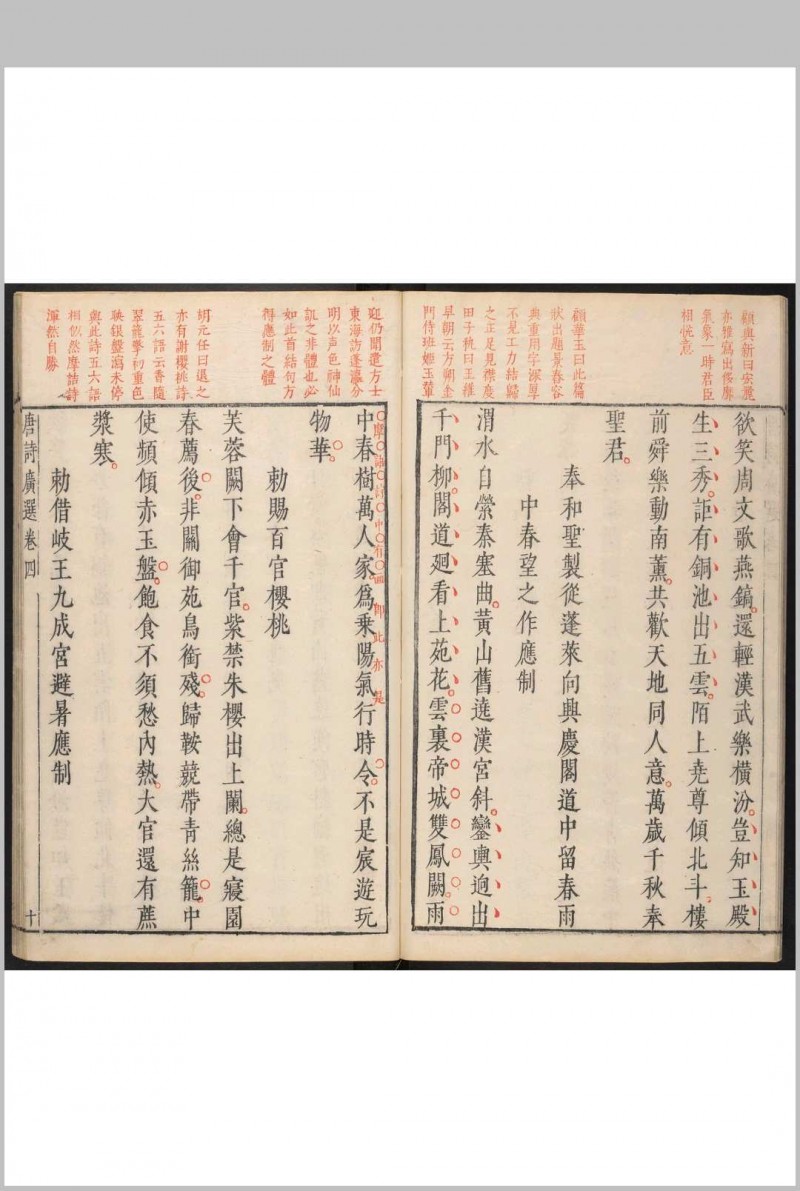 顧與新曰宏麗
亦雅寫出倐鄏
氣象一時君臣
相悅意
顧華玉曰此篇
狀出題景春容
典重用字深厚
不見工力結歸
之正足見襟度
田子秇曰王維
早朝云方朔金
門侍班姬玉輦
欲笑周文歌燕鎬還輕漢武樂橫汾豈知玉殿
生三秀詎有銅池出五雲陌上堯尊傾北斗樓
前舜樂動南薰共歡天地同人意萬歲千秋奉
聖君
奉和聖製從蓬萊向興慶閣道中留春雨
中春望之作應制
渭水自縈秦塞曲黃山舊遶漢宮斜鑾輿逈出
千門柳閣道廻看上苑花雲裏帝城雙鳳闕雨
迎仍聞遣方士
東海訪蓬瀛分
明以声色神仙
諷之非體也必
如此首結句方
得應制之體
胡元任曰退之
亦有謝櫻桃詩
五六語云香隨
翠籠擎初重色
映銀盤瀉未停
與此詩五六語
相似然摩詰詩
渾然自勝
中春樹萬人家爲乗陽氣行時令不是宸遊玩
摩詰詩中有畫即此亦是
物華
勅賜百官櫻桃
芙蓉闕下會千官紫禁朱櫻出上闌總是寢園
春薦後非關御苑鳥銜殘歸鞍競帶青絲籠中
使頻傾赤玉盤飽食不須愁內熱大官還有蔗
漿寒
勅借岐王九成宮避暑應制
唐詩廣選卷四
十